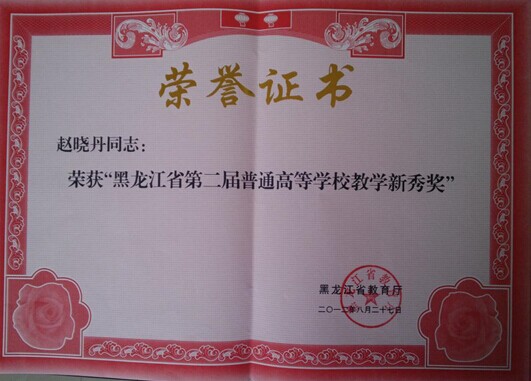 荣誉证书
赵晓丹同志：
荣获“黑龙江省第二届普通高等学校教学新秀奖”
黑龙江省教育厅
二〇一二年八月二十七日